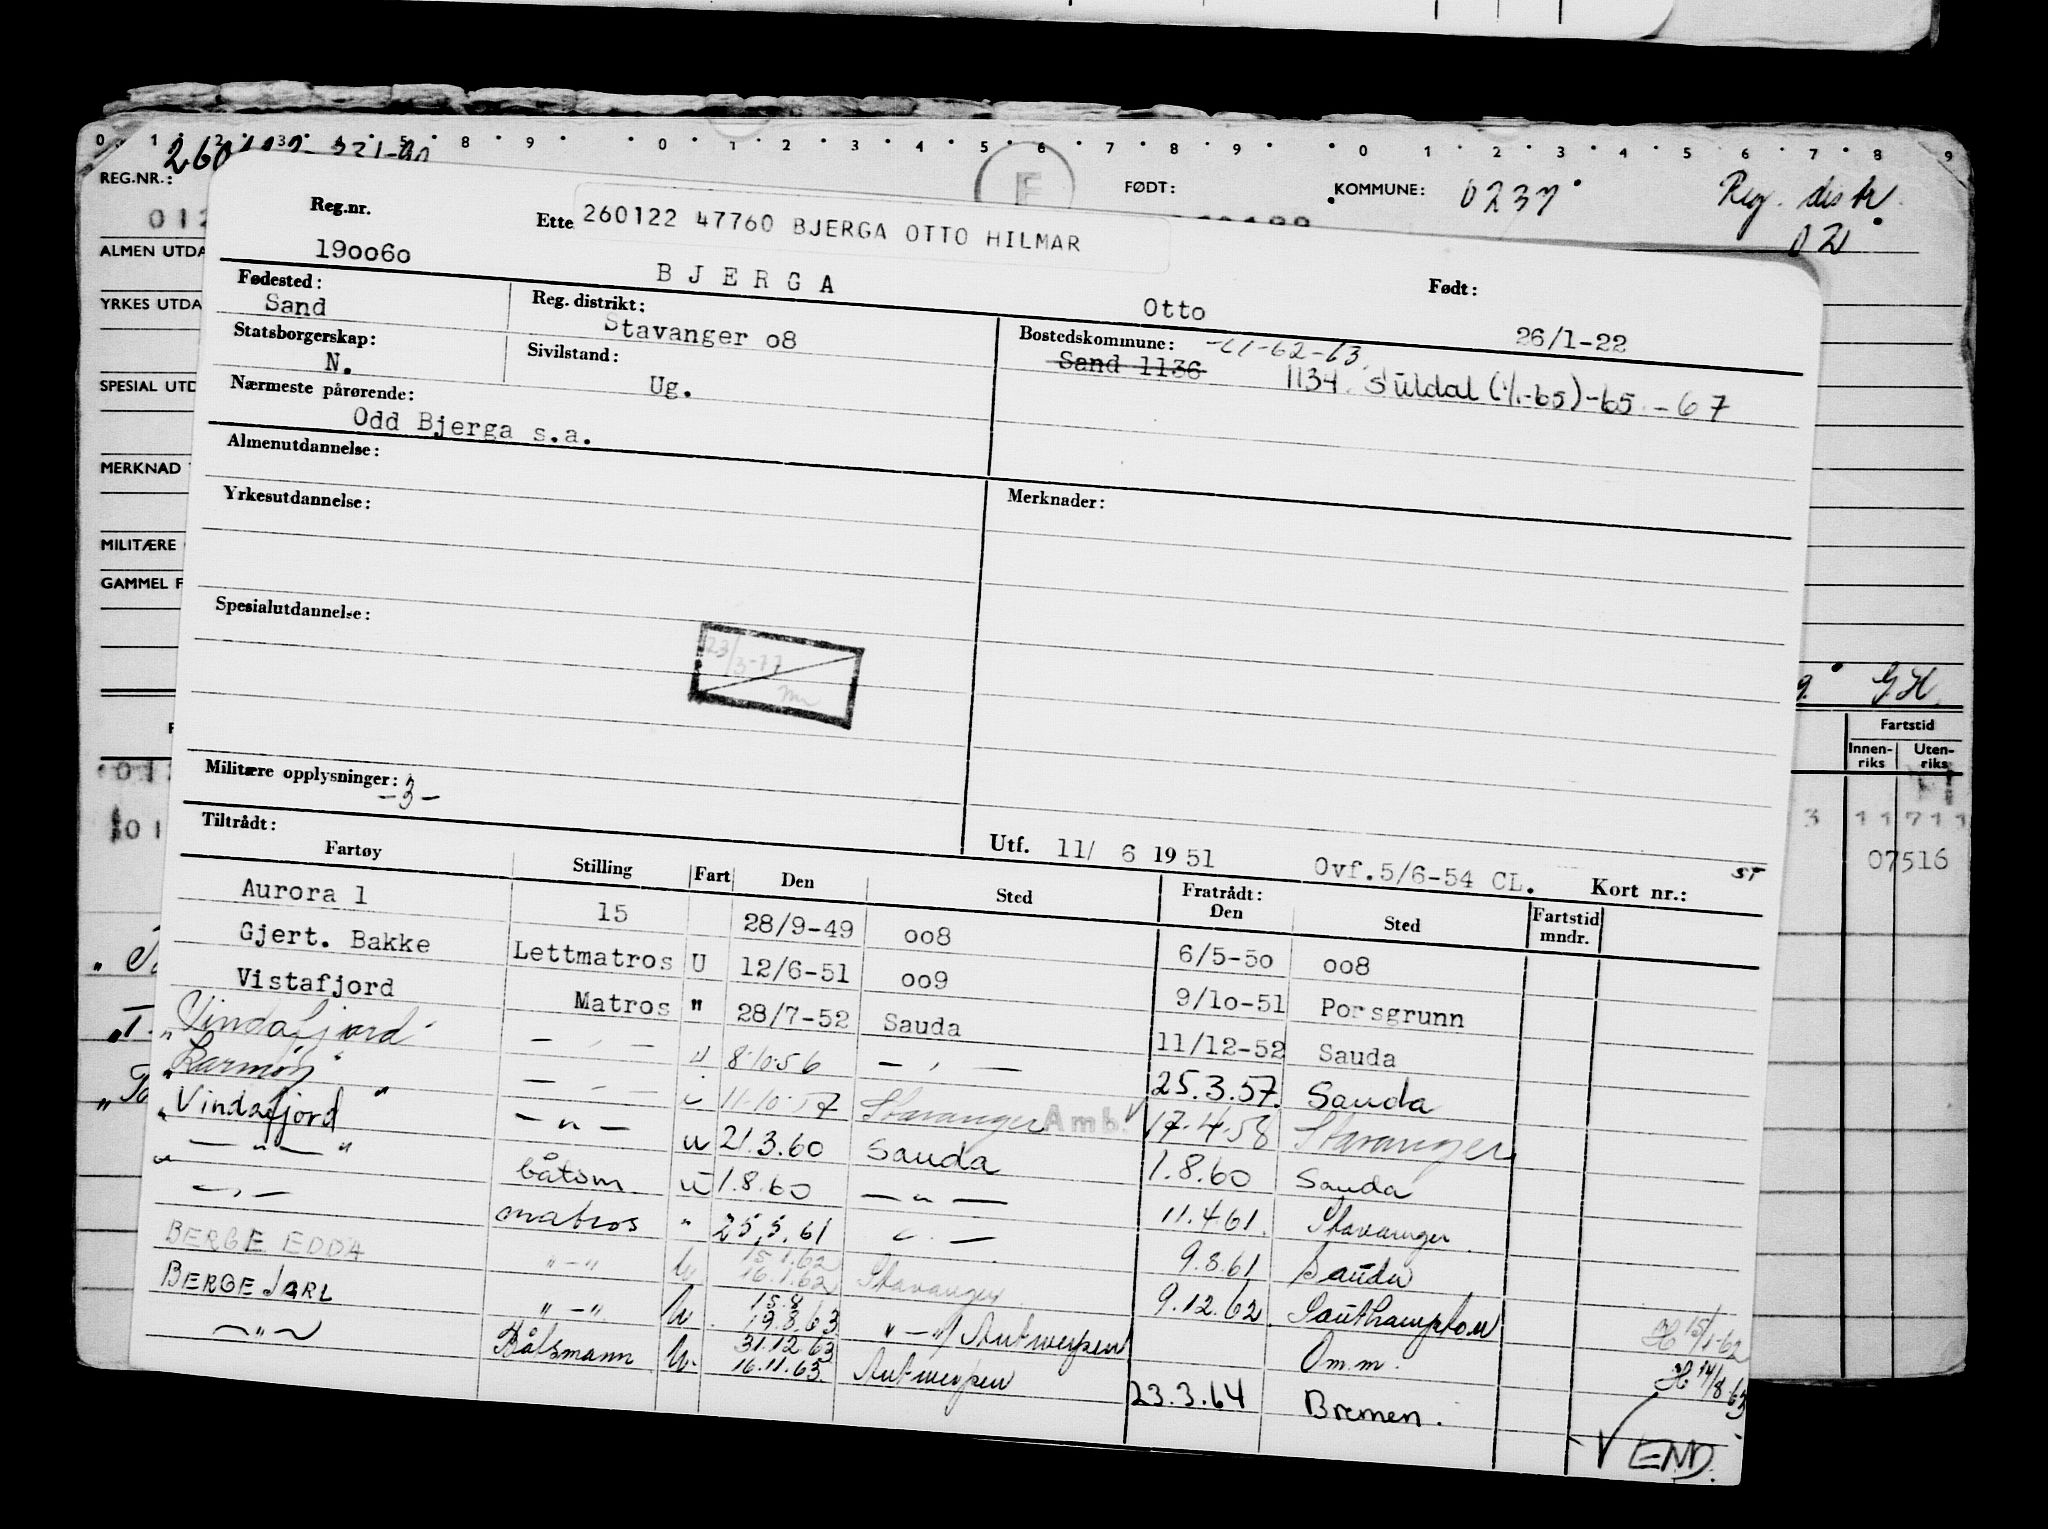 0 1 2 3 4 5 8 9 0 1 2 3 4 5 6 7 8 9 0 1 2 3 4 5 6 7 8 9
REG.NR.: FØDT: KOMMUNE: 0237 Reg. distr.
02
012
ALMEN UTDA
YRKES UTDA
SPESIAL UTD
MERKNAD
MILITÆRE
GAMMEL F
G.H.
Fartstid
Innen-riks Uten-riks
3 11711
07516
Reg.nr. Ette 260122 47760 BJERGA OTTO HILMAR
190060 BJERGA Otto Født: 26/1-22
Fødested: Sand Reg. distrikt: Stavanger 08 Bostedskommune: -61-62-63.
Sand 1136 1134. Suldal (1/1-65)-65.-67
Statsborgerskap: N. Sivilstand: Ug.
Nærmeste pårørende:
Odd Bjerga s.a.
Almenutdannelse:
Yrkesutdannelse: Merknader:
Spesialutdannelse:
23/3-77
Militære opplysninger: -3-
Tiltrådt: Utf. 11/ 6 1951 Ovf.5/6-54 CL. Kort nr.: ST
Fartøy Stilling Fart Den Sted Fratrådt: Den Sted Fartstid mndr.
Aurora 1 15 28/9-49 008 6/5-50 008
Gjert. Bakke Lettmatros U 12/6-51 009 9/10-51 Porsgrunn
Vistafjord Matros " 28/7-52 Sauda 11/12-52 Sauda
"Vindafjord" — " — " 8.10.56 — " — 25.3.57. Sauda
"Karmøy" — " — " 11.10.57 Stavanger Amb. V 17.4.58 Stavanger
"Vindafjord" — " — u 21.3.60 Sauda 1.8.60 Sauda
" — " — " båtsm u 1.8.60 — " — 11.4.61. Stavanger.
" — " — matros " 25.5.61 — " — 9.8.61 Sauda
BERGE EDDA " — " U. 15.1.62 16.1.62 Stavanger 9.12.62 Southampton H 15/1-62
BERGE JARL " — " U. 15.8 19.8.63 " — "/ Antwerpen Om.m. H 14/8 63
— " — Båtsmann U. 31.12.63 16.11.63. Antwerpen 23.3.64 Bremen.
V END.